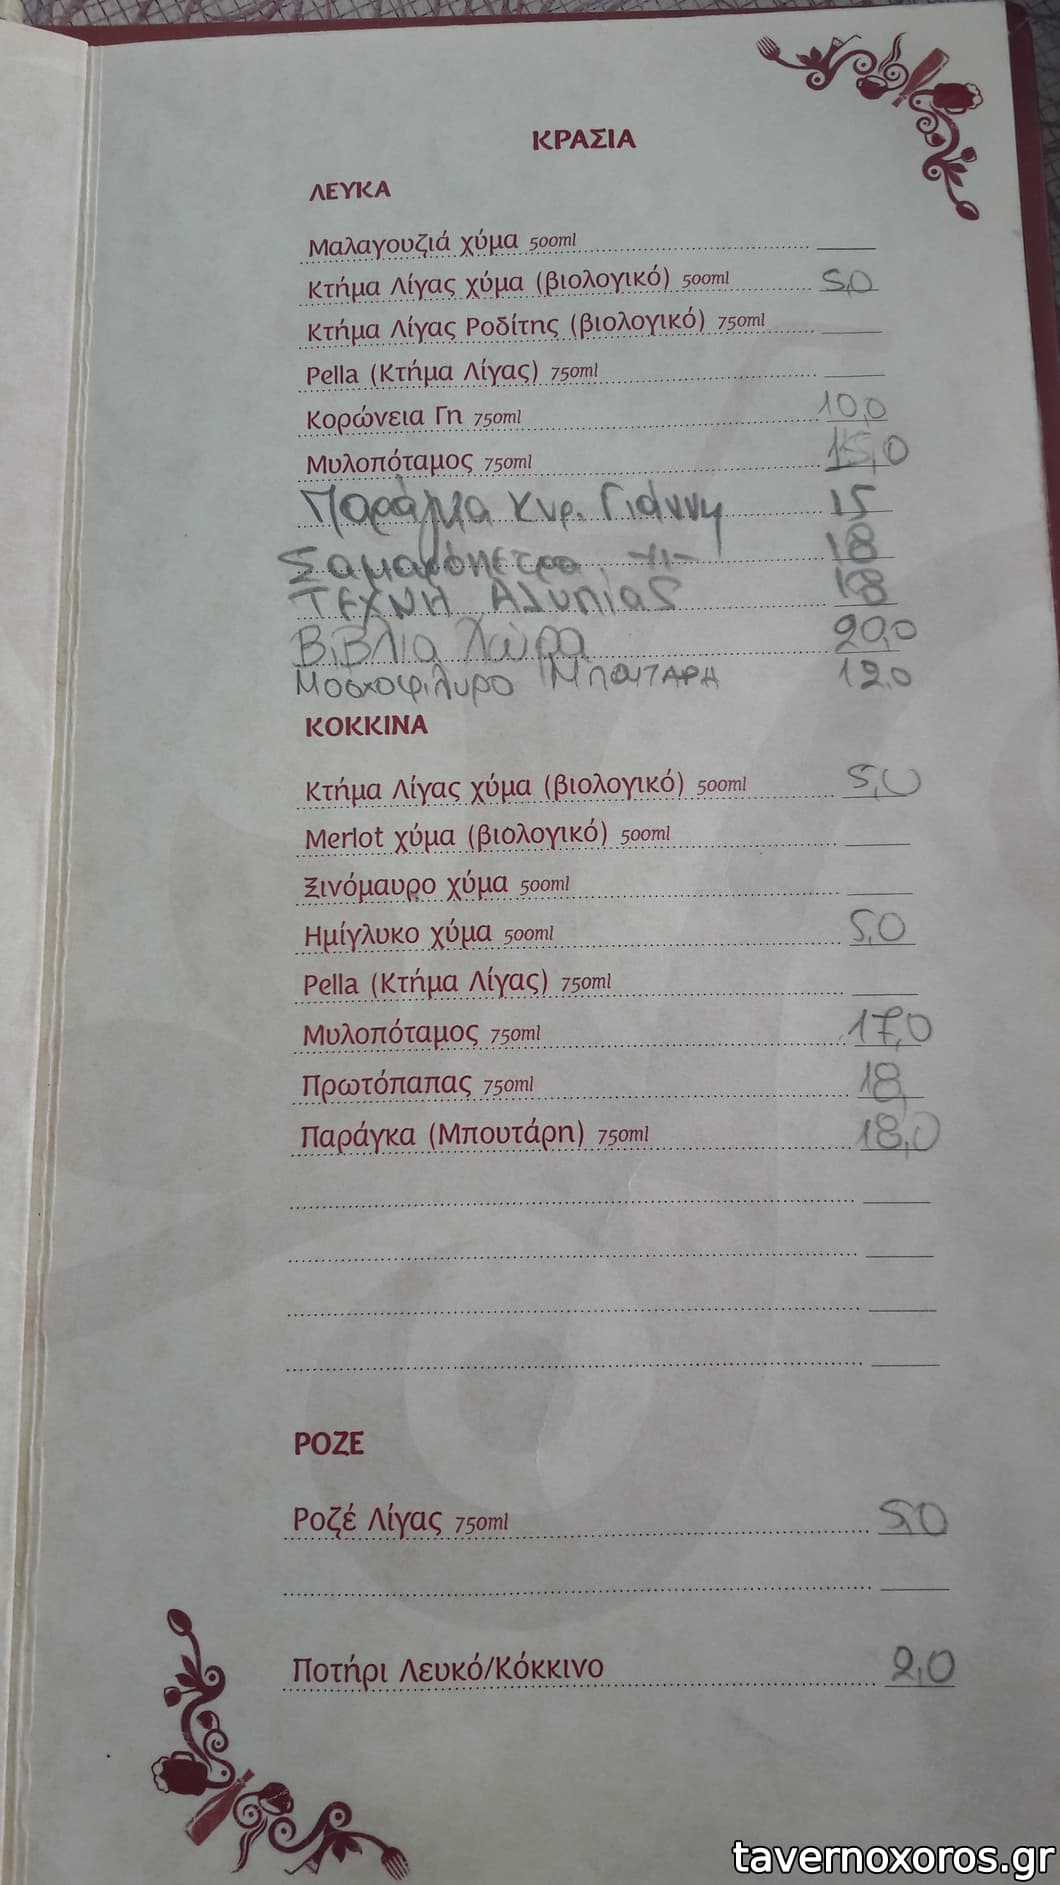 ΚΡΑΣΙΑ
ΛΕΥΚΑ
Μαλαγουζιά χύμα 500ml
Κτήμα Λίγας χύμα (βιολογικό) 500ml 5,0
Κτήμα Λίγας Ροδίτης (βιολογικό) 750ml
Pella (Κτήμα Λίγας) 750ml
Κορώνεια Γη 750ml 10,0
Μυλοπόταμος 750ml 15,0
Παράγκα Κυρ. Γιάννη 15
Σαμαρόπετρα -//- 18
ΤΕΧΝΗ Αλυπίας 18
Βιβλια Χώρα 20,0
Μοσχοφιλυρο ΜΠΟΥΤΑΡΗ 12,0
ΚΟΚΚΙΝΑ
Κτήμα Λίγας χύμα (βιολογικό) 500ml 5,0
Merlot χύμα (βιολογικό) 500ml
Ξινόμαυρο χύμα 500ml
Ημίγλυκο χύμα 500ml 5,0
Pella (Κτήμα Λίγας) 750ml
Μυλοπόταμος 750ml 17,0
Πρωτόπαπας 750ml 18,
Παράγκα (Μπουτάρη) 750ml 18,0
ΡΟΖΕ
Ροζέ Λίγας 750ml 5,0
Ποτήρι Λευκό/Κόκκινο 2,0
tavernoxoros.gr